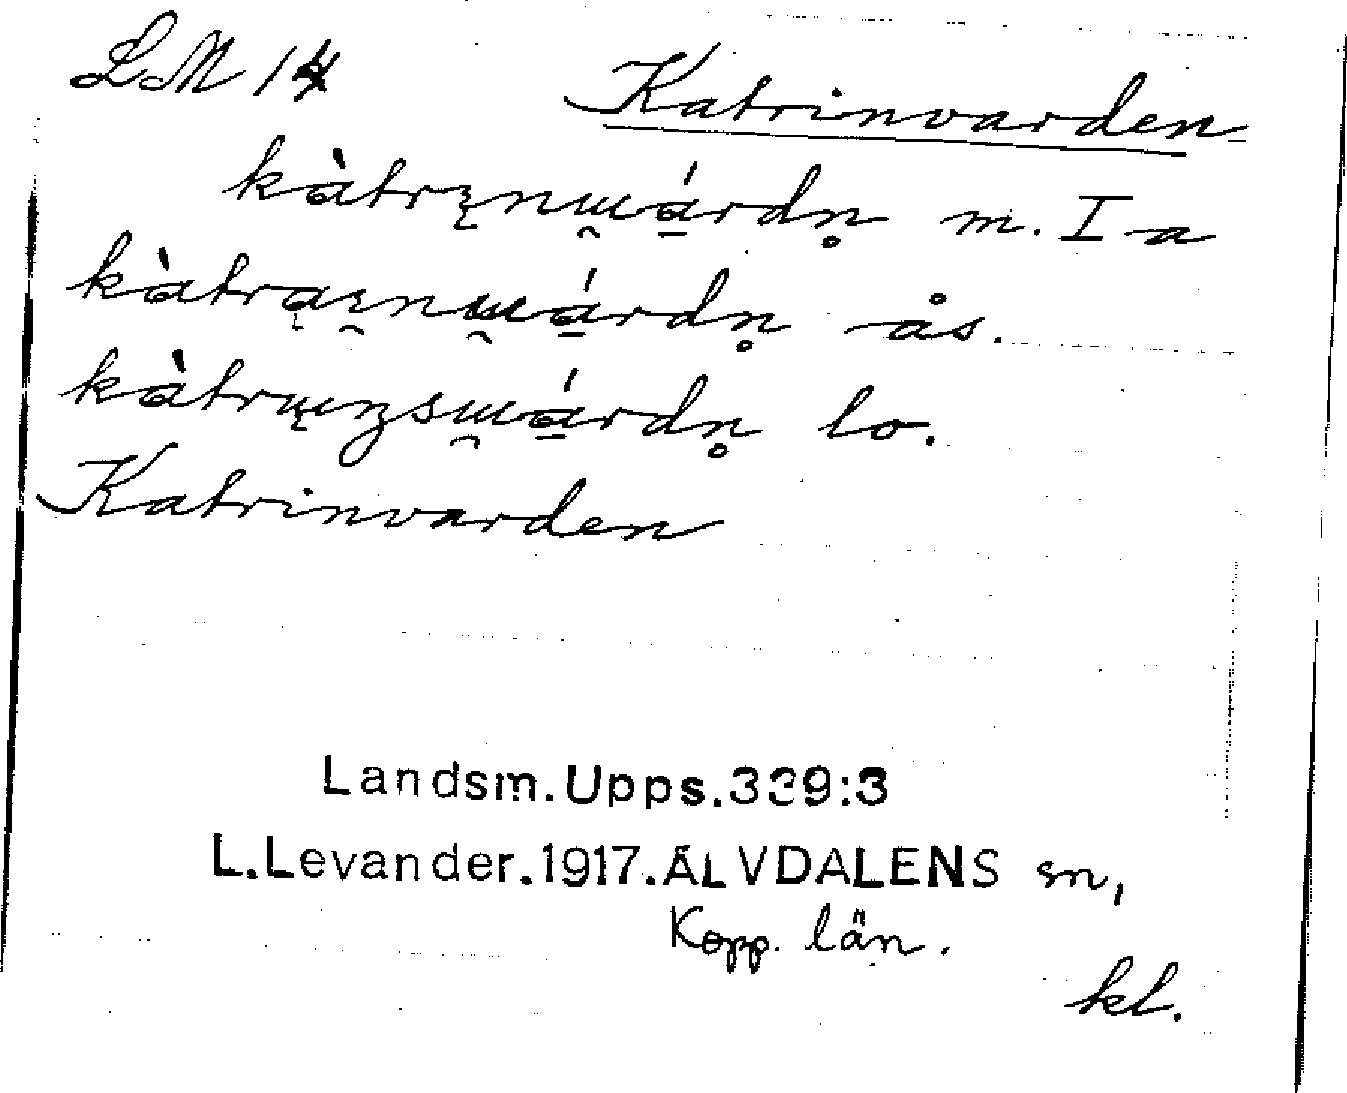 LM 14 Katrinvarden
kàtrįnɯ̯á̱rdn̥ m. I a
kàtrąı̨̯nɯ̯á̱rdn̥ ås.
kàtrɯ̨ŋsɯ̯á̱rdn̥ lo.
Katrinvarden
Landsm.Upps.339:3
L.Levander.1917.ÄLVDALENS sn,
Kopp. län.
kl.